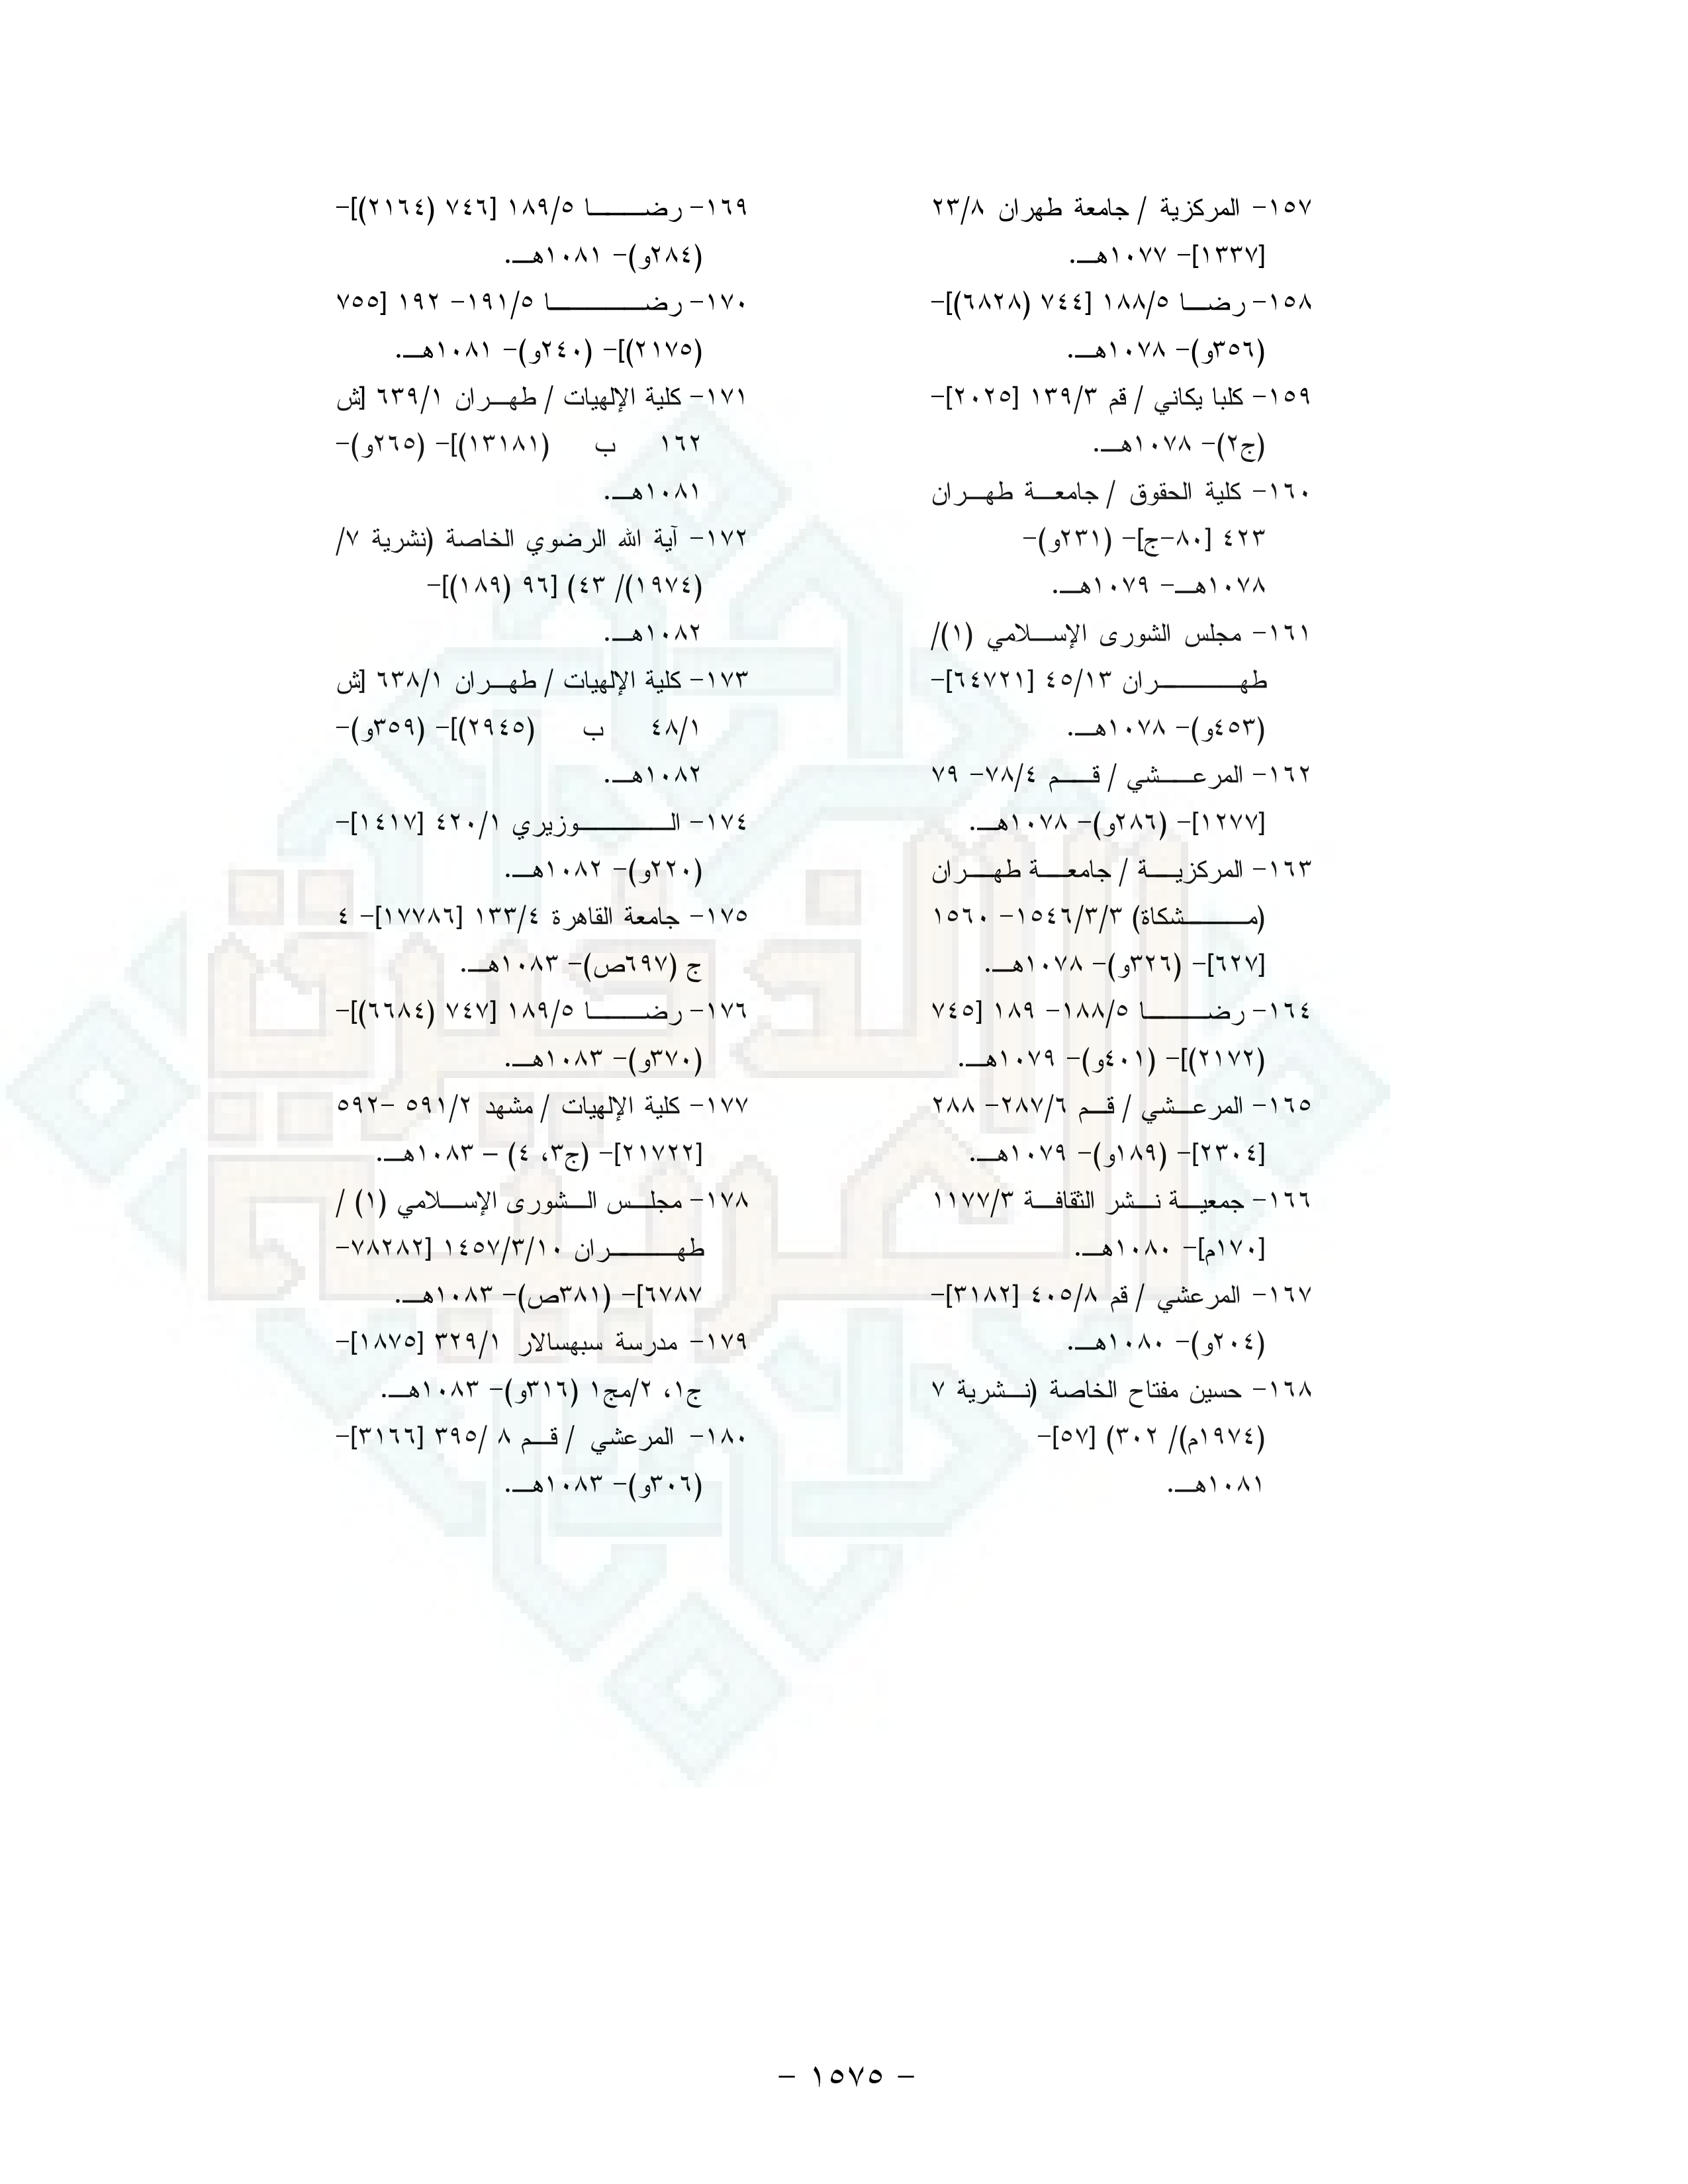 ١٥٧- المركزية / جامعة طهران ٢٣/٨
[١٣٣٧]- ١٠٧٧هـ.
١٥٨- رضا ١٨٨/٥ [٧٤٤ (٦٨٢٨)]-
(٣٥٦و)- ١٠٧٨هـ.
١٥٩- كلبا يكاني / قم ١٣٩/٣ [٢٠٢٥]-
(ج٢)- ١٠٧٨هـ.
١٦٠- كلية الحقوق / جامعة طهران
٤٢٣ [٨٠-ج]- (٢٣١و)-
١٠٧٨هـ- ١٠٧٩هـ.
١٦١- مجلس الشورى الإسلامي (١)/
طهران ٤٥/١٣ [٦٤٧٢١]-
(٤٥٣و)- ١٠٧٨هـ.
١٦٢- المرعشي / قم ٧٨/٤- ٧٩
[١٢٧٧]- (٢٨٦و)- ١٠٧٨هـ.
١٦٣- المركزية / جامعة طهران
(مشكاة) ١٥٤٦/٣/٣- ١٥٦٠
[٦٢٧]- (٣٢٦و)- ١٠٧٨هـ.
١٦٤- رضا ١٨٨/٥- ١٨٩ [٧٤٥
(٢١٧٢)]- (٤٠١و)- ١٠٧٩هـ.
١٦٥- المرعشي / قم ٢٨٧/٦- ٢٨٨
[٢٣٠٤]- (١٨٩و)- ١٠٧٩هـ.
١٦٦- جمعية نشر الثقافة ١١٧٧/٣
[١٧٠م]- ١٠٨٠هـ.
١٦٧- المرعشي / قم ٤٠٥/٨ [٣١٨٢]-
(٢٠٤و)- ١٠٨٠هـ.
١٦٨- حسين مفتاح الخاصة (نشرية ٧
(١٩٧٤م)/ ٣٠٢) [٥٧]-
١٠٨١هـ.
١٦٩- رضا ١٨٩/٥ [٧٤٦ (٢١٦٤)]-
(٢٨٤و)- ١٠٨١هـ.
١٧٠- رضا ١٩١/٥- ١٩٢ [٧٥٥
(٢١٧٥)]- (٢٤٠و)- ١٠٨١هـ.
١٧١- كلية الإلهيات / طهران ٦٣٩/١ [ش
١٦٢ ب (١٣١٨١)]- (٢٦٥و)-
١٠٨١هـ.
١٧٢- آية الله الرضوي الخاصة (نشرية ٧/
(١٩٧٤)/ ٤٣) [٩٦ (١٨٩)]-
١٠٨٢هـ.
١٧٣- كلية الإلهيات / طهران ٦٣٨/١ [ش
٤٨/١ ب (٢٩٤٥)]- (٣٥٩و)-
١٠٨٢هـ.
١٧٤- الوزيري ٤٢٠/١ [١٤١٧]-
(٢٢٠و)- ١٠٨٢هـ.
١٧٥- جامعة القاهرة ١٣٣/٤ [١٧٧٨٦]- ٤
ج (٦٩٧ص)- ١٠٨٣هـ.
١٧٦- رضا ١٨٩/٥ [٧٤٧ (٦٦٨٤)]-
(٣٧٠و)- ١٠٨٣هـ.
١٧٧- كلية الإلهيات / مشهد ٥٩١/٢ -٥٩٢
[٢١٧٢٢]- (ج٣، ٤) – ١٠٨٣هـ.
١٧٨- مجلس الشورى الإسلامي (١) /
طهران ١٤٥٧/٣/١٠ [٧٨٢٨٢-
٦٧٨٧]- (٣٨١ص)- ١٠٨٣هـ.
١٧٩- مدرسة سبهسالار ٣٢٩/١ [١٨٧٥]-
ج١، ٢/مج١ (٣١٦و)- ١٠٨٣هـ.
١٨٠- المرعشي / قم ٨ /٣٩٥ [٣١٦٦]-
(٣٠٦و)- ١٠٨٣هـ.
الذخيرة
العربية
- ١٥٧٥ -